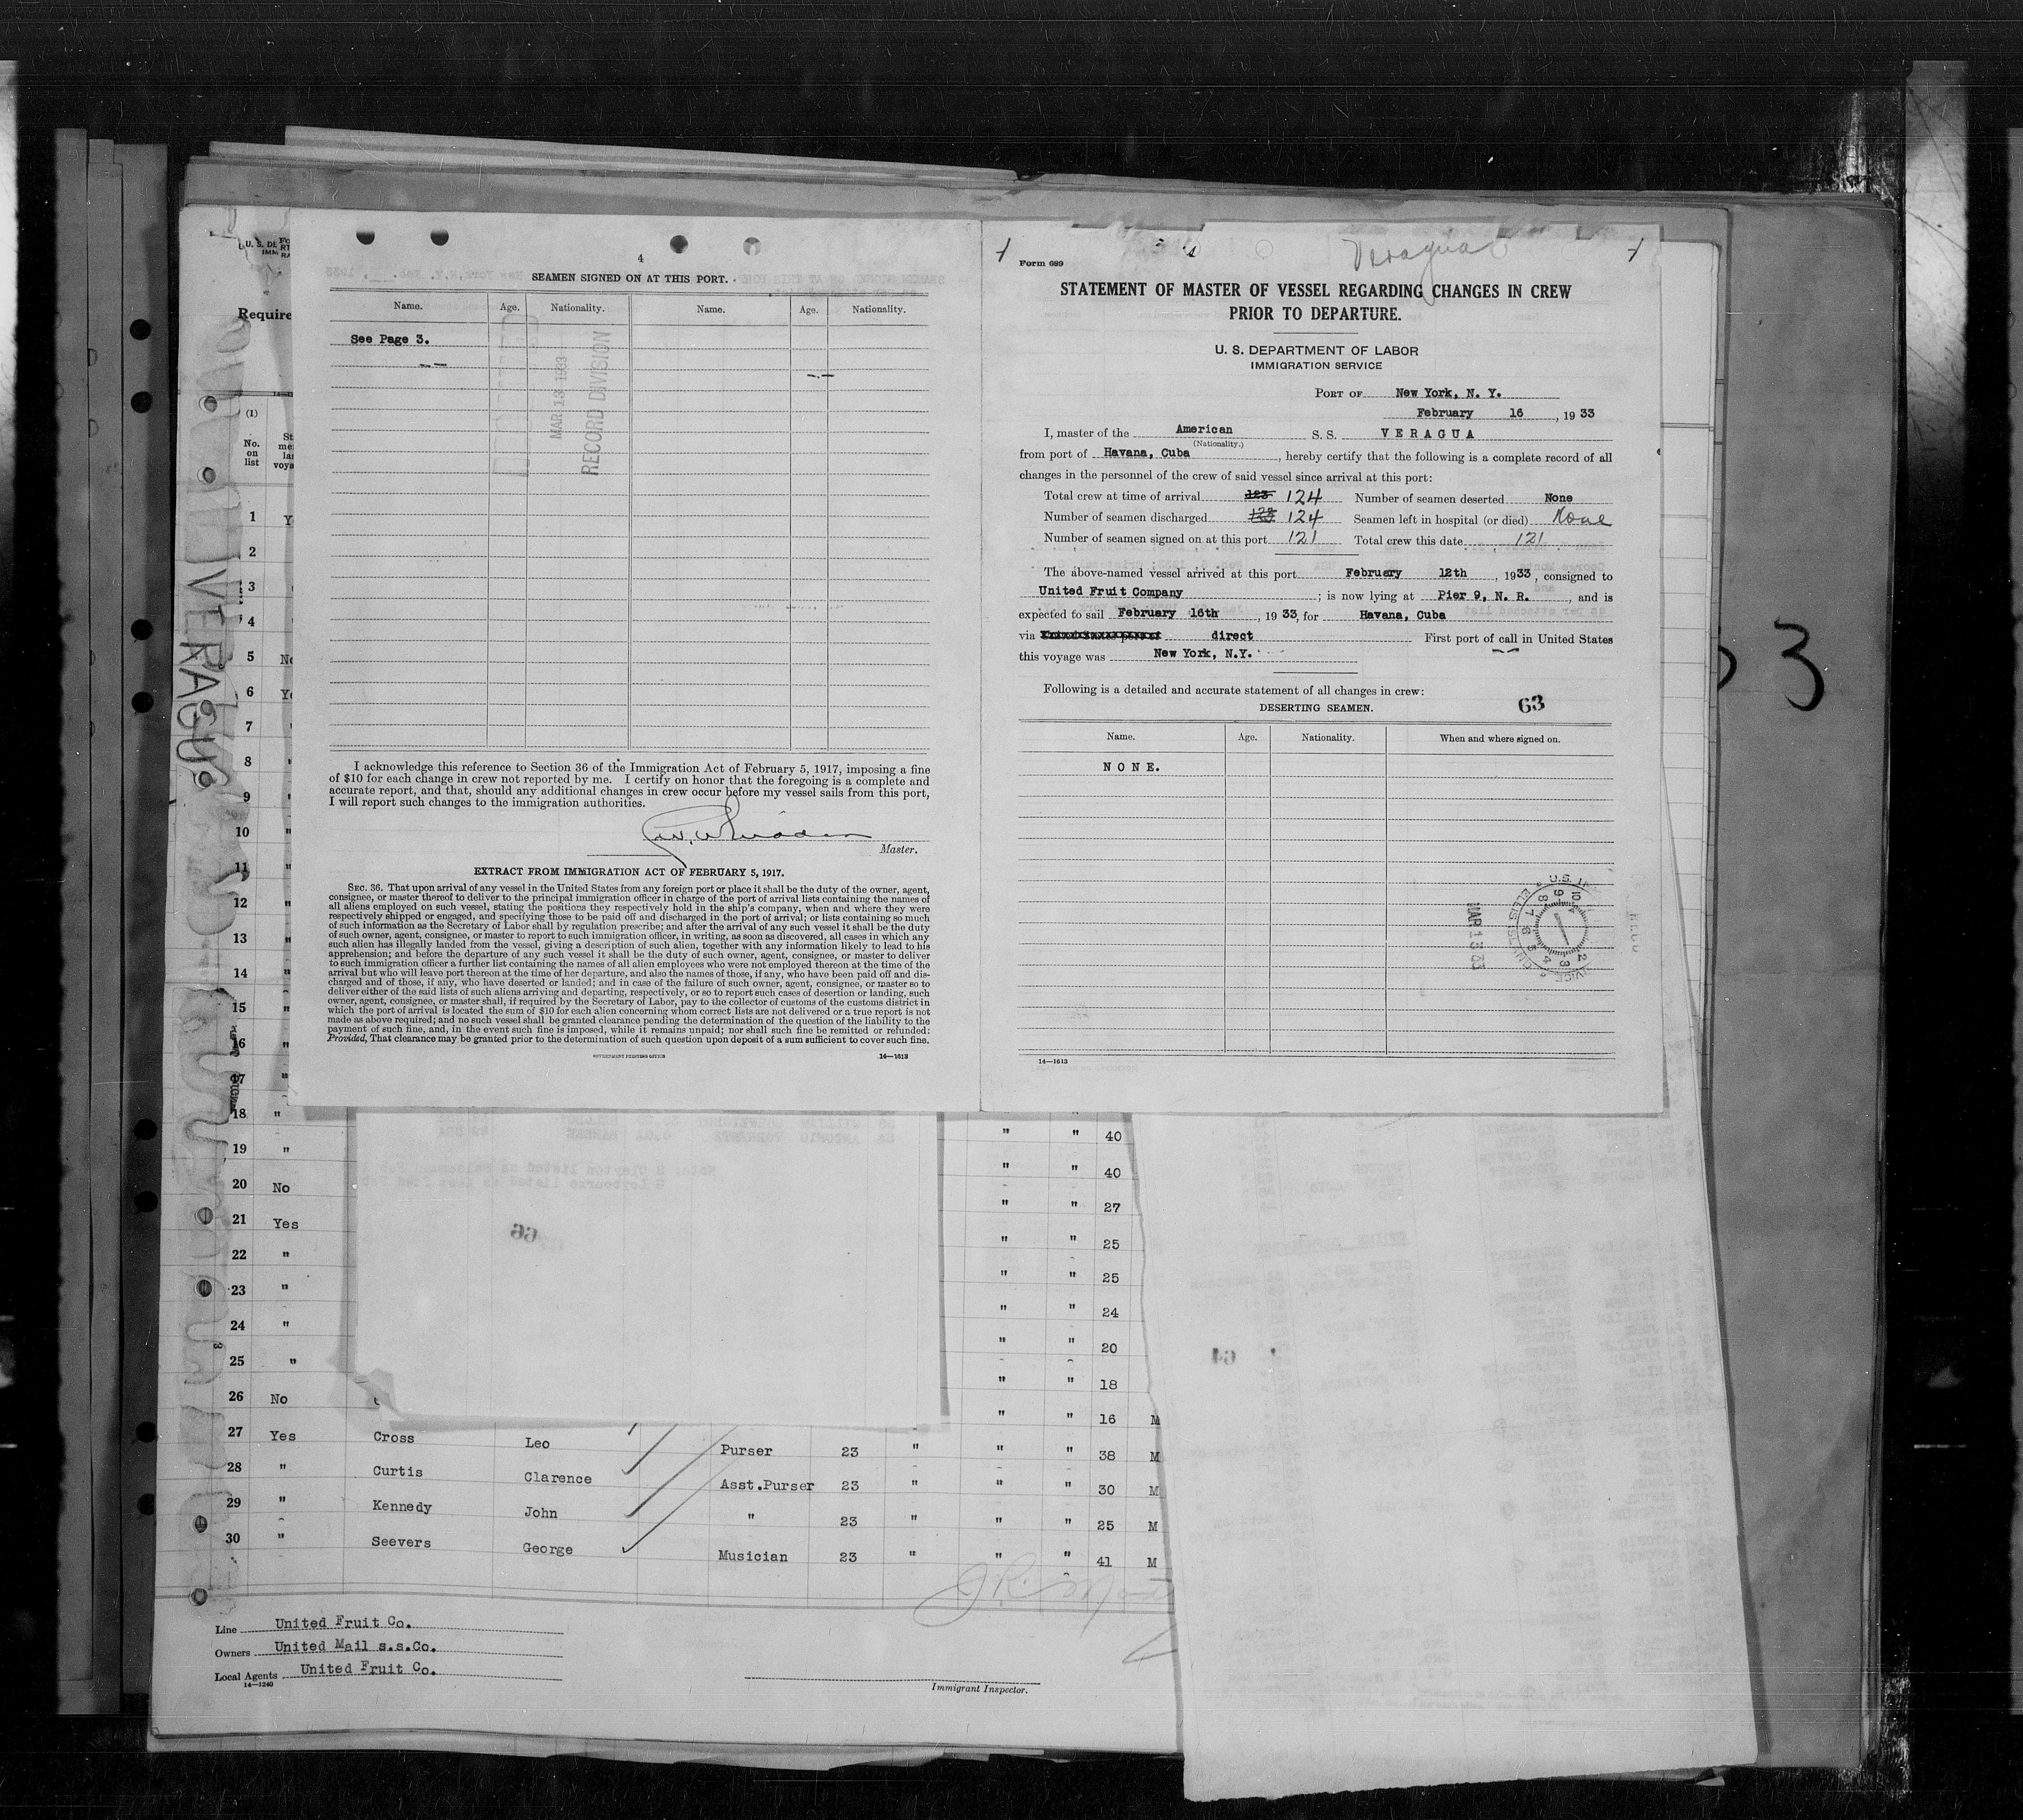 4
SEAMEN SIGNED ON AT THIS PORT.
Name. Age. Nationality. Name. Age. Nationality.
See Page 3.
MAR 13 1933
RECORD DIVISION
I acknowledge this reference to Section 36 of the Immigration Act of February 5, 1917, imposing a fine
of $10 for each change in crew not reported by me. I certify on honor that the foregoing is a complete and
accurate report, and that, should any additional changes in crew occur before my vessel sails from this port,
I will report such changes to the immigration authorities.
Master.
EXTRACT FROM IMMIGRATION ACT OF FEBRUARY 5, 1917.
SEC. 36. That upon arrival of any vessel in the United States from any foreign port or place it shall be the duty of the owner, agent,
consignee, or master thereof to deliver to the principal immigration officer in charge of the port of arrival lists containing the names of
all aliens employed on such vessel, stating the positions they respectively hold in the ship's company, when and where they were
respectively shipped or engaged, and specifying those to be paid off and discharged in the port of arrival; or lists containing so much
of such information as the Secretary of Labor shall by regulation prescribe; and after the arrival of any such vessel it shall be the duty
of such owner, agent, consignee, or master to report to such immigration officer, in writing, as soon as discovered, all cases in which any
such alien has illegally landed from the vessel, giving a description of such alien, together with any information likely to lead to his
apprehension; and before the departure of any such vessel it shall be the duty of such owner, agent, consignee, or master to deliver
to such immigration officer a further list containing the names of all alien employees who were not employed thereon at the time of the
arrival but who will leave port thereon at the time of her departure, and also the names of those, if any, who have been paid off and dis-
charged and of those, if any, who have deserted or landed; and in case of the failure of such owner, agent, consignee, or master so to
deliver either of the said lists of such aliens arriving and departing, respectively, or so to report such cases of desertion or landing, such
owner, agent, consignee, or master shall, if required by the Secretary of Labor, pay to the collector of customs of the customs district in
which the port of arrival is located the sum of $10 for each alien concerning whom correct lists are not delivered or a true report is not
made as above required; and no such vessel shall be granted clearance pending the determination of the question of the liability to the
payment of such fine, and, in the event such fine is imposed, while it remains unpaid; nor shall such fine be remitted or refunded:
Provided, That clearance may be granted prior to the determination of such question upon deposit of a sum sufficient to cover such fine.
GOVERNMENT PRINTING OFFICE 14—1613
Veragua
Form 689
STATEMENT OF MASTER OF VESSEL REGARDING CHANGES IN CREW
PRIOR TO DEPARTURE.
U. S. DEPARTMENT OF LABOR
IMMIGRATION SERVICE
PORT OF New York, N. Y.
February 16, 1933
I, master of the American S. S. VERAGUA
(Nationality.)
from port of Havana, Cuba, hereby certify that the following is a complete record of all
changes in the personnel of the crew of said vessel since arrival at this port:
Total crew at time of arrival 123 124 Number of seamen deserted None
Number of seamen discharged 124 Seamen left in hospital (or died) None
Number of seamen signed on at this port 121 Total crew this date 121
The above-named vessel arrived at this port February 12th, 1933, consigned to
United Fruit Company; is now lying at Pier 9, N. R., and is
expected to sail February 16th, 1933, for Havana, Cuba
via direct First port of call in United States
this voyage was New York, N.Y.
Following is a detailed and accurate statement of all changes in crew:
DESERTING SEAMEN. 63
Name. Age. Nationality. When and where signed on.
NONE.
MAR 13 33
14—1613
Require
VERAGUA
(1)
No.
on
list
1
2
3
4
5
6
7
8
9
10
11
12
13
14
15
16 "
17 "
18 " " " 40
19 " " " 40
20 No " " 27
21 Yes " " 25
22 " " " 25
23 " " " 24
24 " " " 20
25 " " " 18
26 No " " 16 M
27 Yes Cross Leo Purser 23 " " " 38 M
28 " Curtis Clarence Asst.Purser 23 " " " 30 M
29 " Kennedy John " 23 " " " 25 M
30 " Seevers George Musician 23 " " " 41 M
66
64
Line United Fruit Co.
Owners United Mail s.s.Co.
Local Agents United Fruit Co.
14—1240
Immigrant Inspector.
3